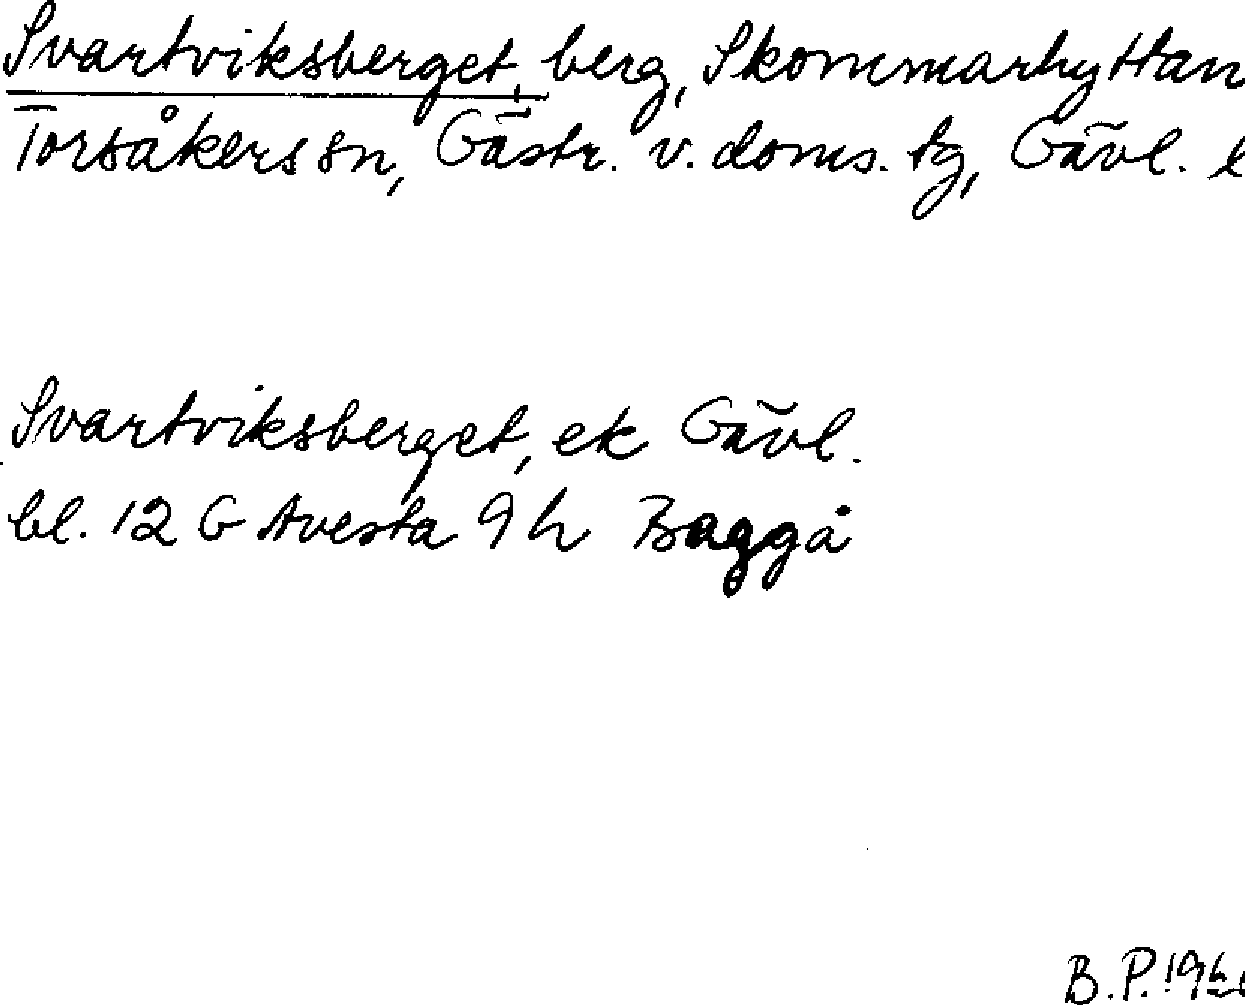 Svartviksberget, berg, Skommarhyttan
Torsåkers sn, Gästr. v. doms. tg, Gävl. l
Svartviksberget, ek Gävl.
bl. 12 G Avesta 9 h Baggå
B.P.